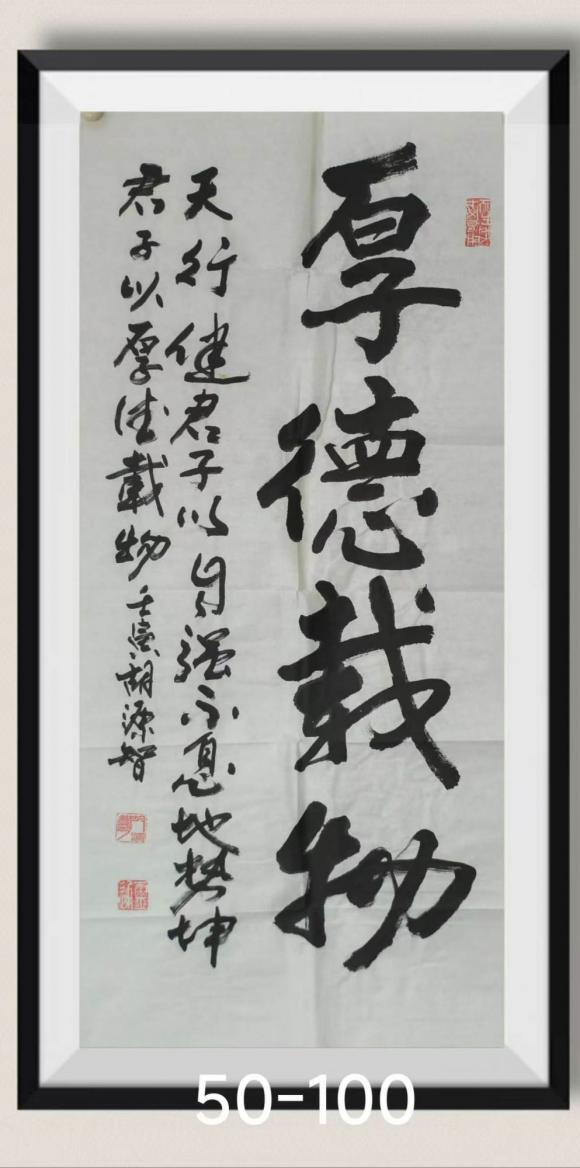 厚德载物
天行健君子以自强不息地势坤
君子以厚德载物 壬寅 胡源智
50-100